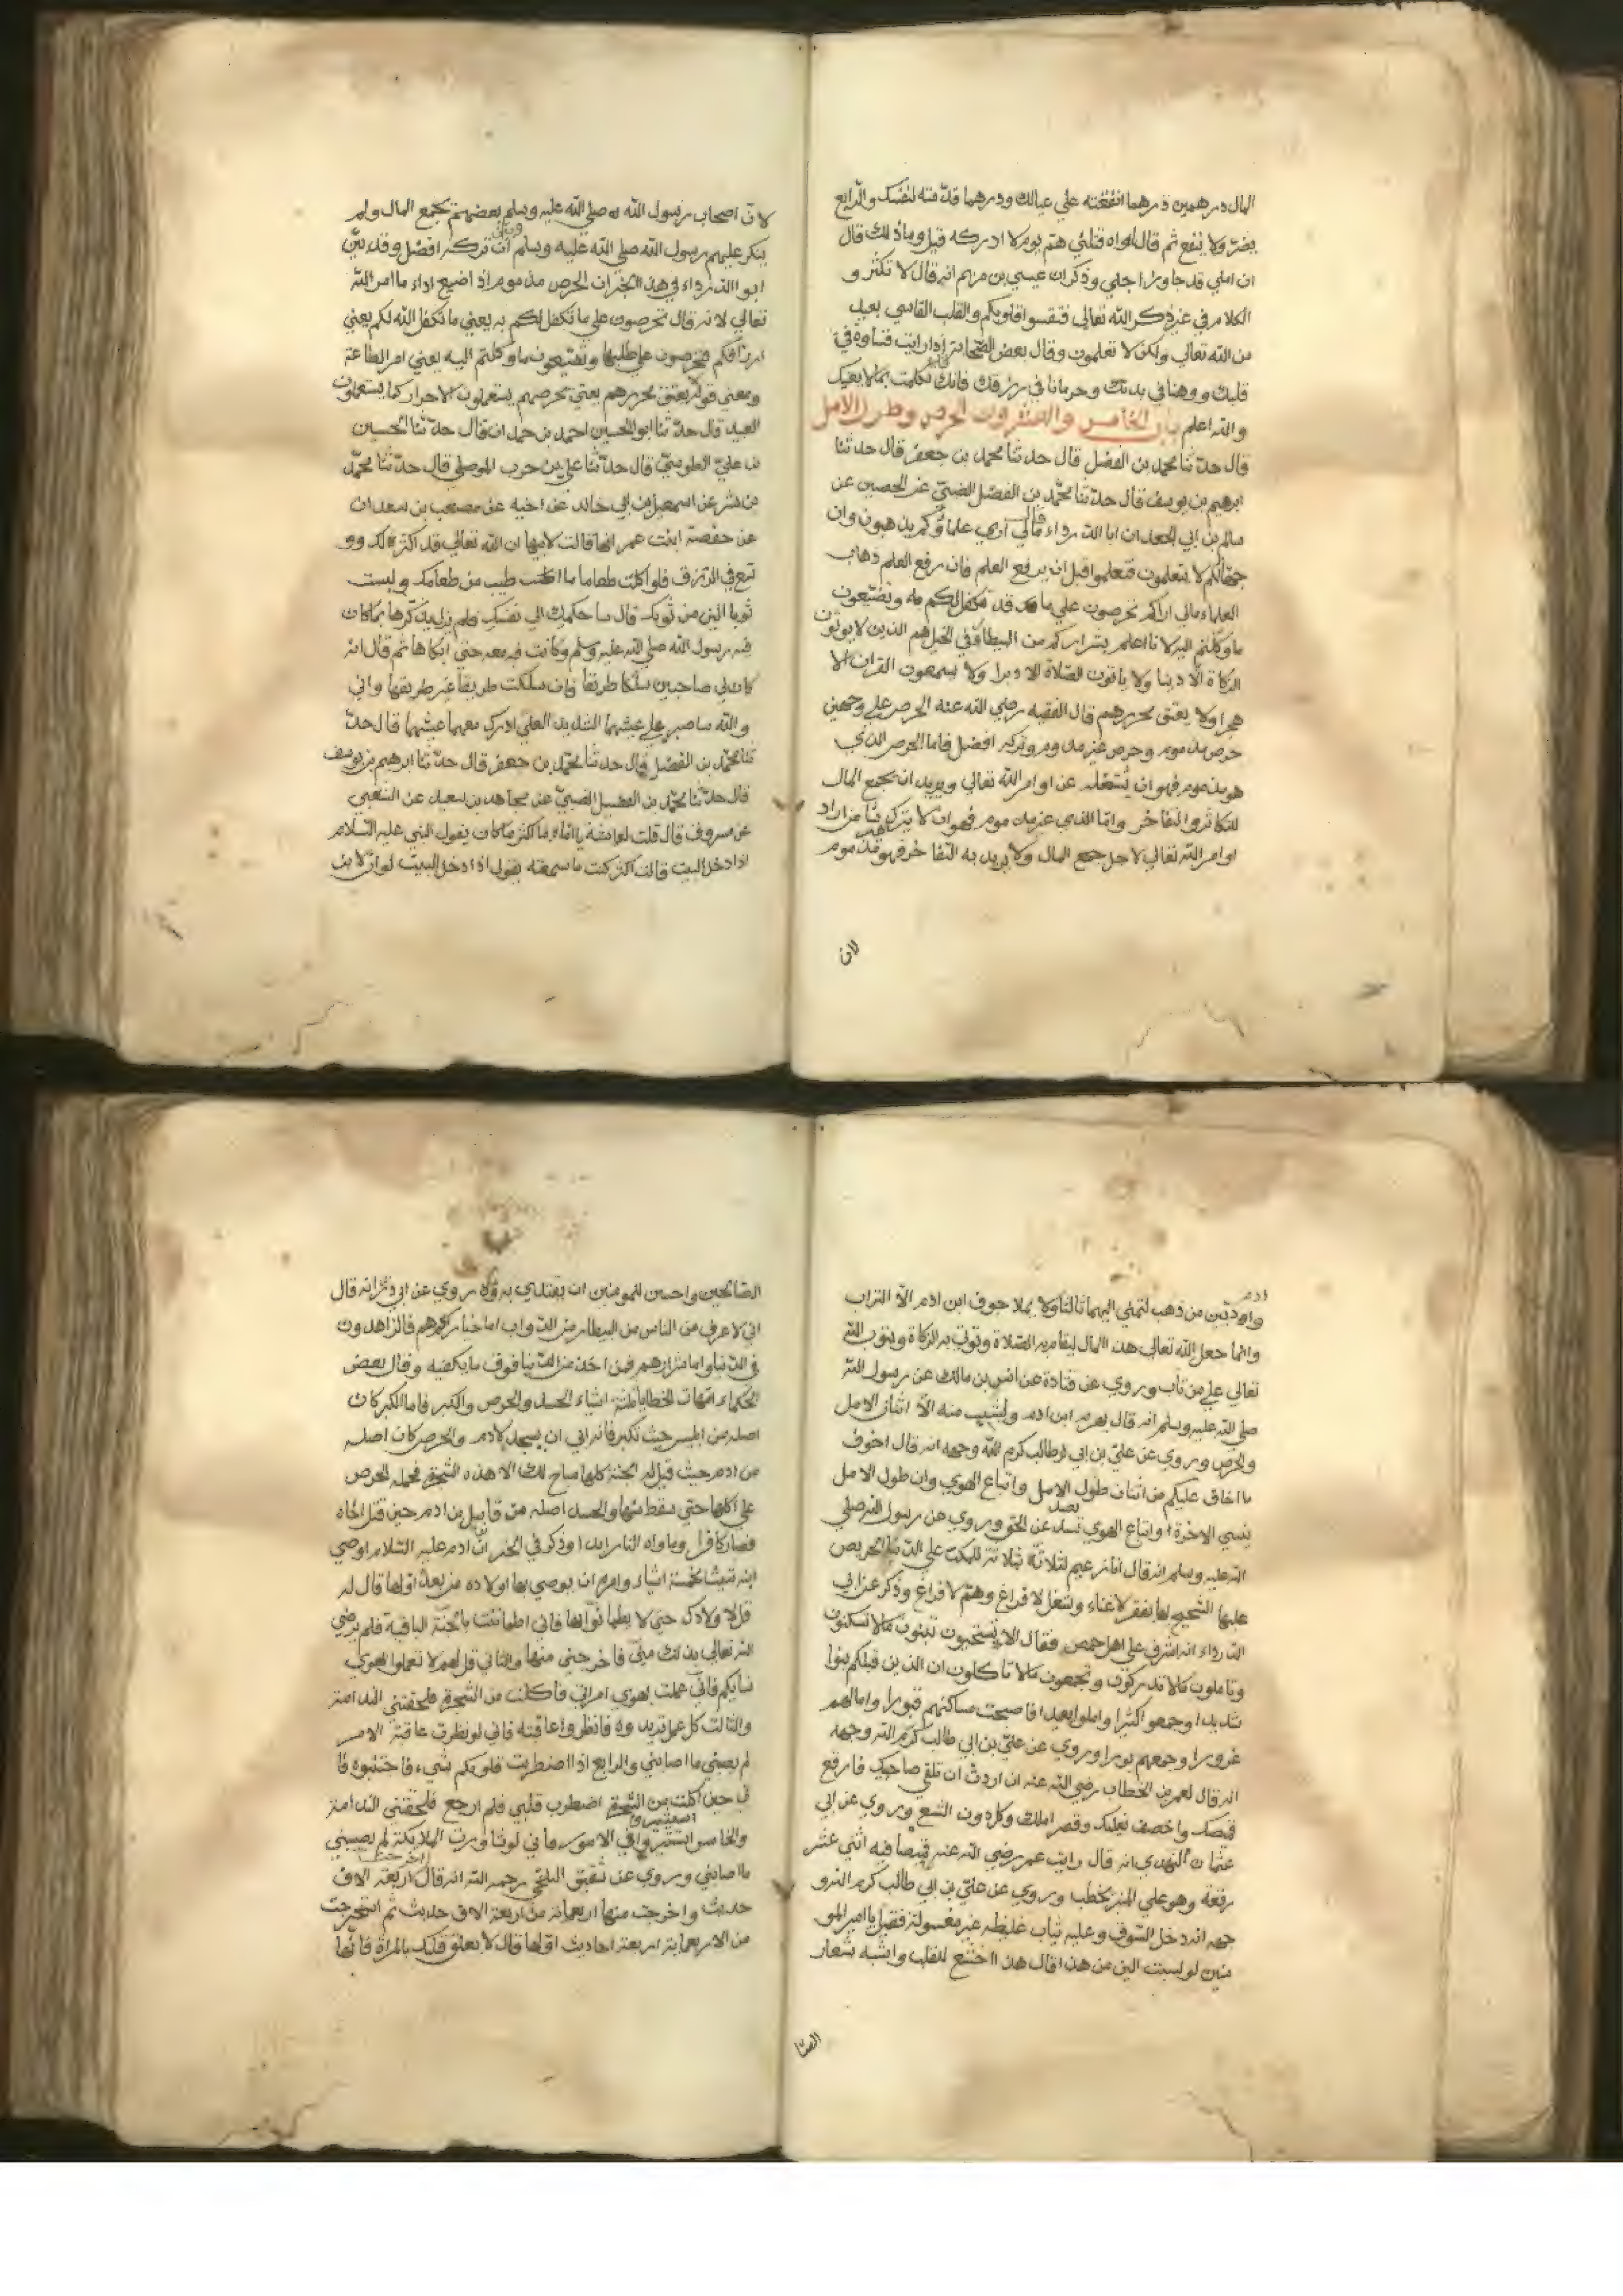 المال درهمين درهما انفقته علي عيالك ودرهما قدّمته لنفسك والرابع
يضرّ ولا ينفع ثم قال اواه قتلني همّ يوم لا ادركه قيل وما ذلك قال
ان املي قد جاوز اجلي وذكر ان عيسي بن مريم انه قال لا تكثرو
الكلام في غير ذكر الله تعالى فتقسوا قلوبكم والقلب القاسي بعيد
من الله تعالى ولكن لا تعلمون وقال بعض الصحابة اذا رايت قساوة في
قلبك ووهنا في بدنك وحرمانا في رزقك فانك تكلمت بما لا يعنيك
والله اعلم باب الخامس والعشرون الحرص وطول الامل
قال حدّثنا محمد بن الفضل قال حدثنا محمد بن جعفر قال حدثنا
ابرهيم بن يوسف قال حدّثنا محمّد بن الفضل الضبيّ عن الحصين عن
سالم بن ابي الجعد ان ابا الدرداء قال مالي اري علماؤكم يذهبون وان
جهّالكم لا يتعلمون فتعلموا قبل ان يرفع العلم فان رفع العلم ذهاب
العلماء مالي اراكم تحرصون علي ما قد تكفل لكم به وتضيّعون
ما وكلتم اليه لانا اعلم بشراركم من البيطارة في الخيل هم الذين لا يوتون
الزكاة الّا دينا ولا ياتون الصّلاة الا دبرا ولا يسمعون القران الا
هجرا ولا يعتق محررهم قال الفقيه رضي الله عنه الحرص علي وجهين
حرص مذموم وحرص غير مذموم وتركه افضل فاما الحرص الذي
هو مذموم فهو ان يشغله عن اوامر الله تعالى ويريد ان يجمع المال
للتكاثر والتفاخر وامّا الذي غير مذموم فهو ان لا يترك شيا من اراد
اوامر الله تعالى لاجل جمع المال ولا يريد به التفاخر فهو غير مذموم
لان
لانّ اصحاب رسول الله صلي الله عليه وسلم بعضهم يجمع المال ولم
ينكر عليهم رسول الله صلي الله عليه وسلم وبيّن ان تركه افضل وقد بيّن
ابو الدرداء في هذا الخبر ان الحرص مذموم اذ اضيع اداء ما امر الله
تعالي لانه قال تحرصون علي ما تكفل لكم به يعني ما تكفل الله لكم يعني
ارزاقكم فتحرصون علي طلبها وتضيّعون ما وكلتم اليه يعني امر الطاعة
ومعني قوله يعتق محررهم يعني تحرصهم يستعملون الاحرار كما يستعملون
العبيد قال حدّثنا ابو الحسين احمد بن حمدان قال حدّثنا الحسين
بن عليّ الطوسيّ قال حدّثنا علي بن حرب الموصلي قال حدّثنا محمّد
بن بشر عن اسمعيل بن ابي خالد عن اخيه عن مصعب بن سعد ان
عن حفصة ابنت عمر انها قالت لابيها ان الله تعالى قد اكثر لك وو
سع في الرزق فلو اكلت طعاما اطيب من طعامك ولبست
ثوبا الين من ثوبك قال ساحكمك الي نفسك فلم يزل يذكّرها بما كان
فيه رسول الله صلي الله عليه وسلم وكانت فيه معه حتي ابكاها ثم قال انه
كان لي صاحبين سلكا طريقا فان سلكت طريقا غير طريقها واني
والله ساصبر علي عيشهما الشديد لعلي ادرك معهما عيشهما قال حدّ
ثنا محمّد بن الفضل قال حدثنا محمّد بن جعفر قال حدّثنا ابرهيم بن يوسف
قال حدّثنا محمّد بن الفضل الضبيّ عن مجاهد بن سعيد عن الشعبي
عن مسروق قال قلت لعايشة يا امّاه ما اكثر ما كان يقول النبي عليه السّلام
اذا دخل البيت قالت اكثر كنت ما سمعته يقول اذا دخل البيت لو ان لابن
ادم
واديين من ذهب لتمني اليهما ثالثا ولا يملا جوف ابن ادم الّا التراب
وانما جعل الله تعالى هذا المال ليقام به الصّلاة وتوتي به الزكاة ويتوب الله
تعالي علي من تاب وروي عن قتادة عن انس بن مالك عن رسول الله
صلي الله عليه وسلم انه قال يهرم ابن ادم ويشيب منه الّا اثنان الامل
والحرص وروي عن عليّ بن ابي طالب كرم الله وجهه انه قال اخوف
ما اخاف عليكم من اثنان طول الامل واتباع الهوي وان طول الامل
ينسي الاخرة واتباع الهوي يصد عن الحق وروي عن رسول الله صلي
الله عليه وسلم انه قال انا زعيم لثلاثة بثلاثة للمكبّ علي الدّنيا الحريص
عليها الشحيح بها بفقر لا غناء وشغل لا فراغ وهمّ لا فراغ وذكر عن ابي
الدّرداء انه اشرف علي اهل حمص فقال الا تستحيون تبنون ما لا تسكنون
وتاملون ما لا تدركون وتجمعون ما لا تاكلون ان الذين قبلكم بنوا
شديدا وجمعوا كثيرا واملوا بعيدا فاصبحت مساكنهم قبورا وامالهم
غرورا وجمعهم بورا وروي عن عليّ بن ابي طالب كرّم الله وجهه
انه قال لعمر بن الخطاب رضي الله عنه ان اردت ان تلقي صاحبك فارقع
قميصك واخصف نعلك وقصر املك وكل دون الشبع وروي عن ابي
عثمان النهدي انه قال رايت عمر رضي الله عنه قميصا فيه اثني عشر
رقعة وهو علي المنبر يخطب وروي عن عليّ بن ابي طالب كرم الله و
جهه انه دخل السّوق وعليه ثياب غليظه غير مغسولة فقيل يا امير المو
منين لو لبست الين من هذا قال هذا اخشع للقلب واشبه بشعار
الصّا
الصّالحين واحسن للمومنين ان يقتدي به وروي عن ابي ذر انه قال
اني لاعرف من الناس من البيطار من الدّواب اما خياركم هم فالزاهدون
في الدّنيا واما شرارهم فمن اخذ من الدّنيا فوق ما يكفيه وقال بعض
الحكماء امّهات الخطايا ثلثة اشياء الحسد والحرص والكبر فاما الكبر كان
اصله من ابليس حيث تكبر فانه ابي ان يسجد لادم والحرص كان اصله
من ادم حيث قيل له الجنّة كلها مباح لك الا هذه الشّجرة فحمله الحرص
علي اكلها حتي سقط منها والحسد اصله من قابيل بن ادم حين قتل اخاه
فصار كافرا وماواه النار ابدا وذكر في الخبر انّ ادم عليه السّلام اوصي
ابنه شيث بخمسة اشياء وامره ان يوصي بها اولاده من بعده اوّلها قال له
قل لاولادك حتي لا يطمانّوا بها فاني اطماننت بالجنّة الباقية فلم يرضي
الله تعالى بذلك منّي فاخرجني منها والثاني قل لهم لا تعملوا بهوي
نسايكم فانّي عملت بهوي امراتي فاكلت من الشّجرة فلحقتني الندامة
والثالث كل عمل تريدوه فانظروا عاقبته فاني لو نظرت عاقبة الامر
لم يصبني ما اصابني والرابع اذا اضطربت قلوبكم بشيء فاجتنبوه فا
ني حين اكلت من الشّجرة اضطرب قلبي فلم ارجع فلحقتني الندامة
والخامس استشيروا في الامور فاني لو شاورت الملايكة لم يصيبني
ما اصابني وروي عن شقيق البلخي رحمه الله انه قال اخرجت اربعة الاف
حديث واخرجت منها اربعماية من اربعة الاف حديث ثم استخرجت
من الاربعماية اربعة احاديث اوّلها قال لا يعلق قلبك بالمراة فانّها